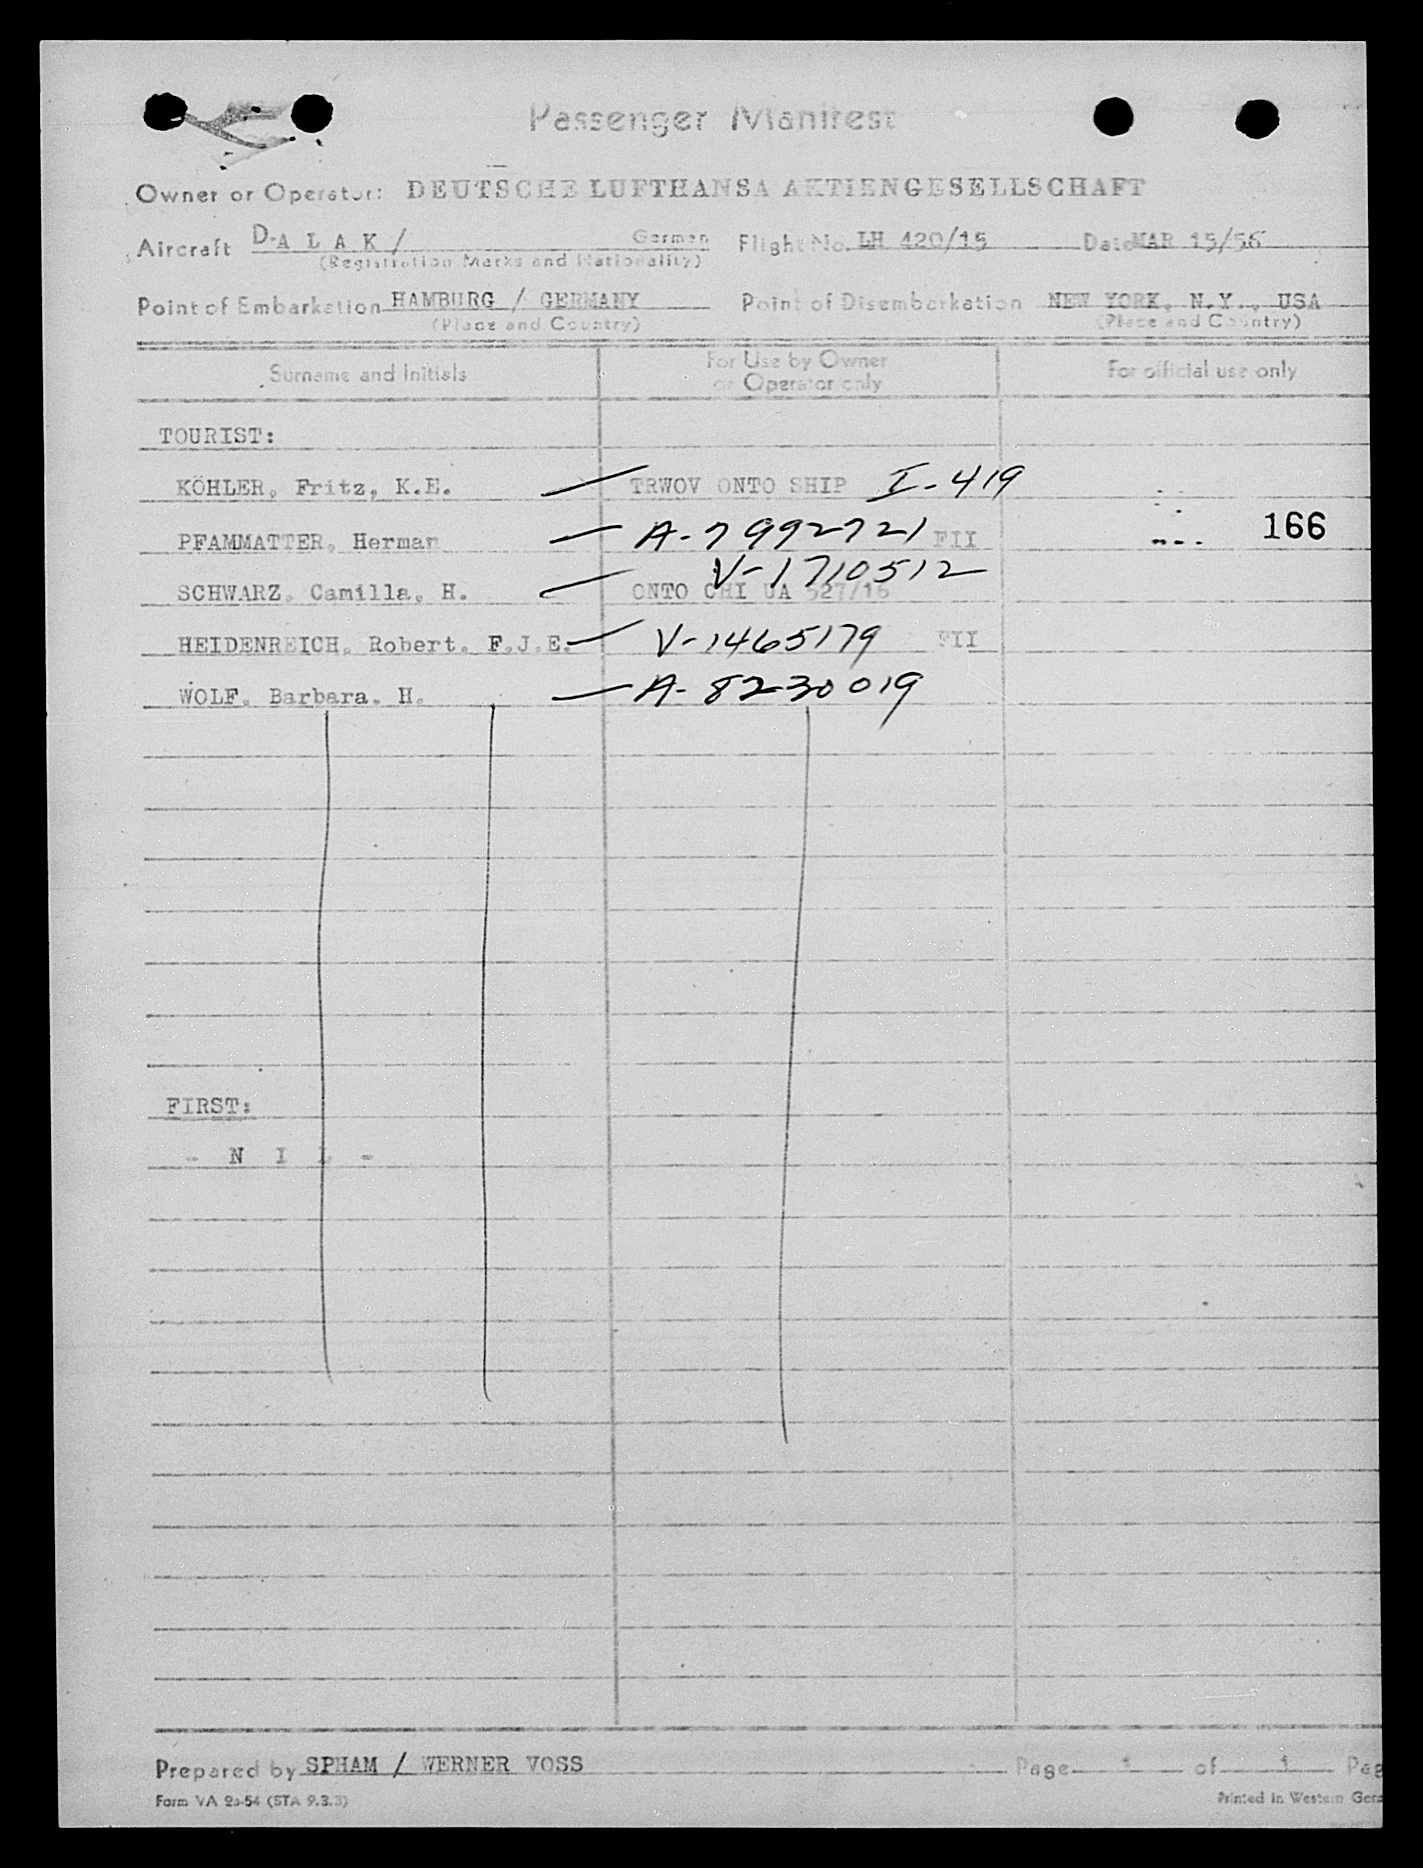 Passenger Manifest
Owner or Operator: DEUTSCHE LUFTHANSA AKTIENGESELLSCHAFT
Aircraft D-A L A K / German Flight No. LH 420/15 Date MAR 15/56
(Registration Marks and Nationality)
Point of Embarkation HAMBURG / GERMANY Point of Disembarkation NEW YORK, N.Y., USA
(Place and Country) (Place and Country)
Surname and Initials For Use by Owner or Operator only For official use only
TOURIST:
KÖHLER, Fritz, K.E. TRWOV ONTO SHIP I-419
PFAMMATTER, Herman A-7992721 FII 166
SCHWARZ, Camilla, H. V-1710512
ONTO CHI UA 527/16
HEIDENREICH, Robert, F.J.E. V-1465179 FII
WOLF, Barbara, H. A-8230019
FIRST:
- N I L -
Prepared by SPHAM / WERNER VOSS Page 1 of 1 Pag
Form VA 2b-54 (STA 9.3.3) Printed in Western Ger